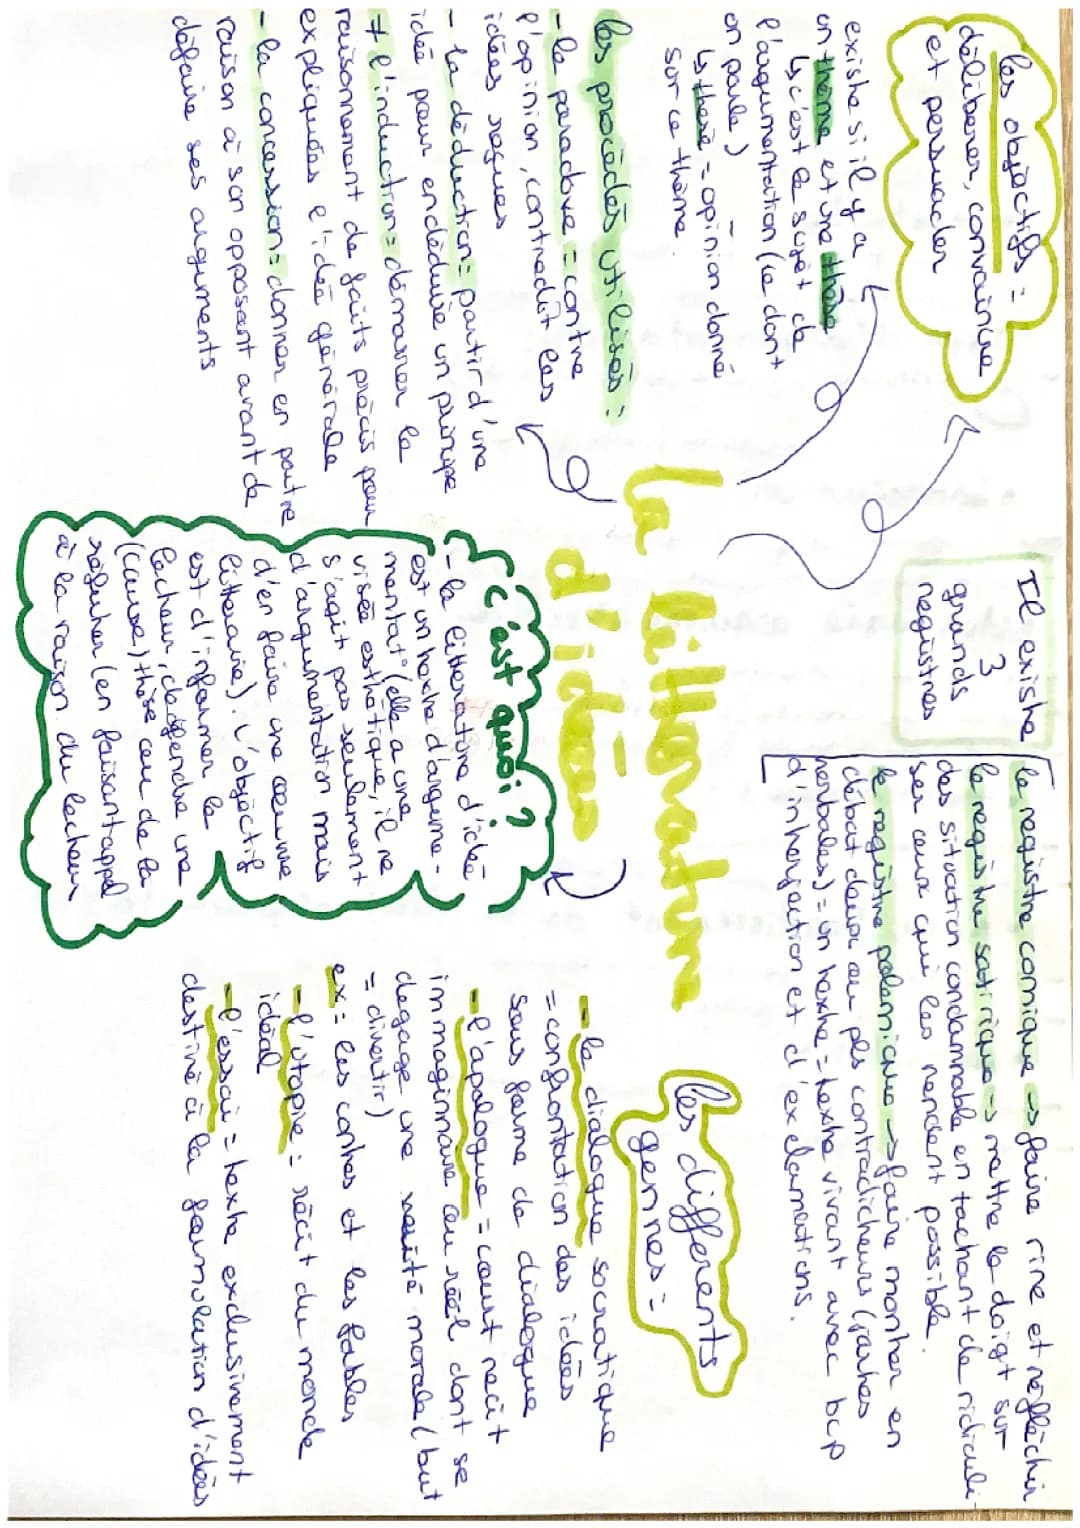 La littérature
d'idées
Les objectifs =
délibérer, convaincre
et persuader
existe si il y a
un thème et une thèse
↳ c'est le sujet de
l'argumentation (ce dont
on parle)
↳ thèse = opinion donné
sur ce thème.
Les procédés utilisés :
- le paradoxe = contre
l'opinion, contredit les
idées reçues
- la déduction = partir d'une
idée pour en déduire un principe
≠ l'induction = démarrer le
raisonnement de faits précis pour
expliquées l'idée générale
- la concession = donner en partie
raison à son opposant avant de
défaire ses arguments
c'est quoi ?
- la litterature d'idée
est un texte d'argume-
mentat° (elle a une
visée esthétique, il ne
s'agit pas seulement
d'argumentation mais
d'en faire une œuvre
litteraire). L'objectif
est d'informer le
lecteur, deffendre une
(cause) thèse ou de la
réfuter (en faisant appel
à la raison du lecteur
Il existe
3
grands
registres
le registre comique → faire rire et réfléchir
le registre satirique → mettre le doigt sur
des situation condamnable en tachant de ridiculi-
ser ceux qui les rendent possible.
le registre polémique → faire montrer en
débat deux ou pls contradicteurs (joutes
verbales) = un texte = texte vivant avec bcp
d'interjection et d'exclamations.
Les différents
genres =
- le dialogue socratique
= confrontation des idées
sous forme de dialogue
- l'apologue = court récit
immaginaire ou réél dont se
degage une vérité morale (but
= divertir)
ex = les contes et les fables
- l'utopie = récit du monde
idéal
- l'essai = texte exclusivement
destiné à la formulation d'idées